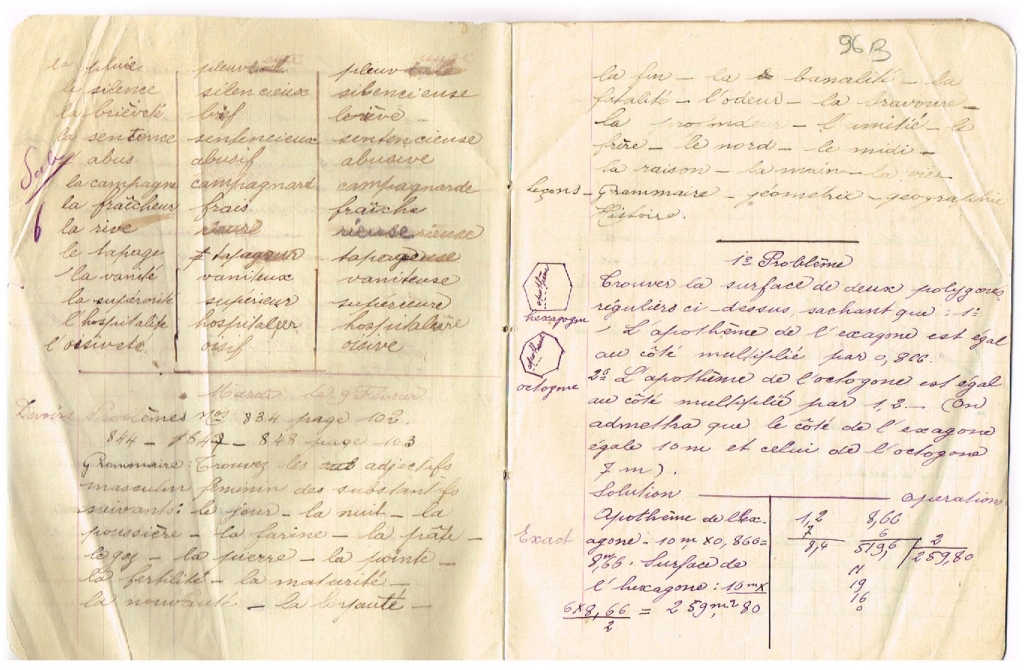 la pluie pleuv pleuv
le silence silencieux silencieuse
la brièveté bref brève
la sentence sentencieux sentencieuse
abus abusif abusive
la campagne campagnard campagnarde
la fraîcheur frais fraîche
la rive rieuse
le tapage tapageur tapageuse
la vanité vaniteux vaniteuse
la supériorité supérieur supérieure
l'hospitalité hospitalier hospitalière
l'oisiveté oisif oisive
6
Mardi le 9 Février
Devoirs Problèmes Nos 834 page 102
844 – 847 – 848 page 103
Grammaire : Trouvez les adjectifs
masculin féminin des substantifs
suivants : le jour – la nuit – la
poussière – la farine – la pâte –
le gaz – la pierre – la pointe –
la fertilité – la maturité –
la nouveauté – la loyauté –
96B
la fin – la banalité – la
fatalité – l'odeur – la bravoure –
la profondeur – l'amitié – le
frère – le nord – le midi –
la raison – la main – la vie –
Leçons – Grammaire – géometrie – geographie
Histoire.
1e Problème
Trouver la surface de deux polygones
réguliers ci-dessus, sachant que : 1º
L'apothème de l'exagone est égal
au côté multiplié par 0,866.
2º L'apothème de l'octogone est égal
au côté multiplié par 1,2 – (On
admettra que le côté de l'exagone
égale 10 m et celui de l'octogone
7 m).
apothème
hexagogne
apothème
octogone
Solution operation
Exact
Apothème de l'ex-
agone : 10 m x 0,866 =
8m,66. Surface de
l'hexagone : 10 m x
6 x 8,66 = 259 m2 80
2
1,2 8,66
7 6
8,4 519,6 2
259,80
11
19
16
0